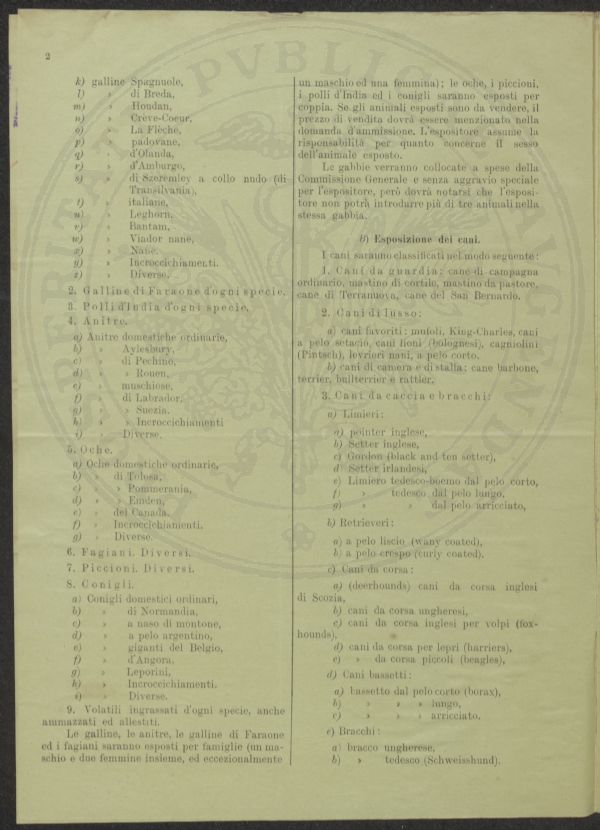 2
k) galline Spagnuole,
l) » di Breda,
m) » Houdan,
n) » Crève-Coeur,
o) » La Flèche,
p) » padovane,
q) » d'Olanda,
r) » d'Amburgo,
s) » di Szeremley a collo nudo (di
Transilvania),
t) » italiane,
u) » Leghorn,
v) » Bantam,
w) » Viador nane,
x) » Nane.
y) » Incroccichiamenti.
z) » Diverse.
2. Galline di Faraone d'ogni specie.
3. Polli d'India d'ogni specie.
4. Anitre.
a) Anitre domestiche ordinarie,
b) » Aylesbury,
c) » di Pechino,
d) » » Rouen,
e) » muschiose,
f) » di Labrador,
g) » » Suezia.
h) » » Incroccichiamenti
i) » Diverse.
5. Oche.
a) Oche domestiche ordinarie,
b) » di Tolosa,
c) » » Pommerania,
d) » » Emden,
e) » del Canada.
f) » Incroccichiamenti.
g) » Diverse.
6. Fagiani. Diversi.
7. Piccioni. Diversi.
8. Conigli.
a) Conigli domestici ordinari,
b) » di Normandia,
c) » a naso di montone,
d) » a pelo argentino,
e) » giganti del Belgio,
f) » d'Angora,
g) » Leporini,
h) » Incroccichiamenti.
i) » Diverse.
9. Volatili ingrassati d'ogni specie, anche
ammazzati ed allestiti.
Le galline, le anitre, le galline di Faraone
ed i fagiani saranno esposti per famiglie (un ma-
schio e due femmine insieme, ed eccezionalmente
un maschio ed una femmina); le oche, i piccioni,
i polli d'India ed i conigli saranno esposti per
coppia. Se gli animali esposti sono da vendere, il
prezzo di vendita dovrà essere menzionato nella
domanda d'ammissione. L'espositore assume la
risponsabilità per quanto concerne il sesso
dell'animale esposto.
Le gabbie verranno collocate a spese della
Commissione Generale e senza aggravio speciale
per l'espositore, però dovrà notarsi che l'esposi-
tore non potrà introdurre più di tre animali nella
stessa gabbia.
B) Esposizione dei cani.
I cani saranno classificati nel modo seguente:
1. Cani da guardia: cane di campagna
ordinario, mastino di cortile, mastino da pastore,
cane di Terranuova, cane del San Bernardo.
2. Cani di lusso:
a) cani favoriti: mufoli, King-Charles, cani
a pelo setacio, cani lioni (bolognesi), cagniolini
(Pintsch), levrieri nani, a pelo corto.
b) cani di camera e di stalla: cane barbone,
terrier, bullterrier e rattier.
3. Cani da caccia e bracchi:
a) Limieri:
a) pointer inglese,
b) Setter inglese,
c) Gordon (black and ten setter),
d) Setter irlandesi,
e) Limiero tedesco-boemo dal pelo corto,
f) » tedesco dal pelo lungo,
g) » » dal pelo arricciato,
b) Retrieveri:
a) a pelo liscio (wany coated),
b) a pelo crespo (curly coated).
c) Cani da corsa:
a) (deerhounds) cani da corsa inglesi
di Scozia,
b) cani da corsa ungheresi,
c) cani da corsa inglesi per volpi (fox-
hounds),
d) cani da corsa per lepri (harriers),
e) » da corsa piccoli (beagles),
d) Cani bassetti:
a) bassetto dal pelo corto (borax),
b) » » » lungo,
c) » » » arricciato.
e) Bracchi:
a) bracco ungherese,
b) » tedesco (Schweisshund).